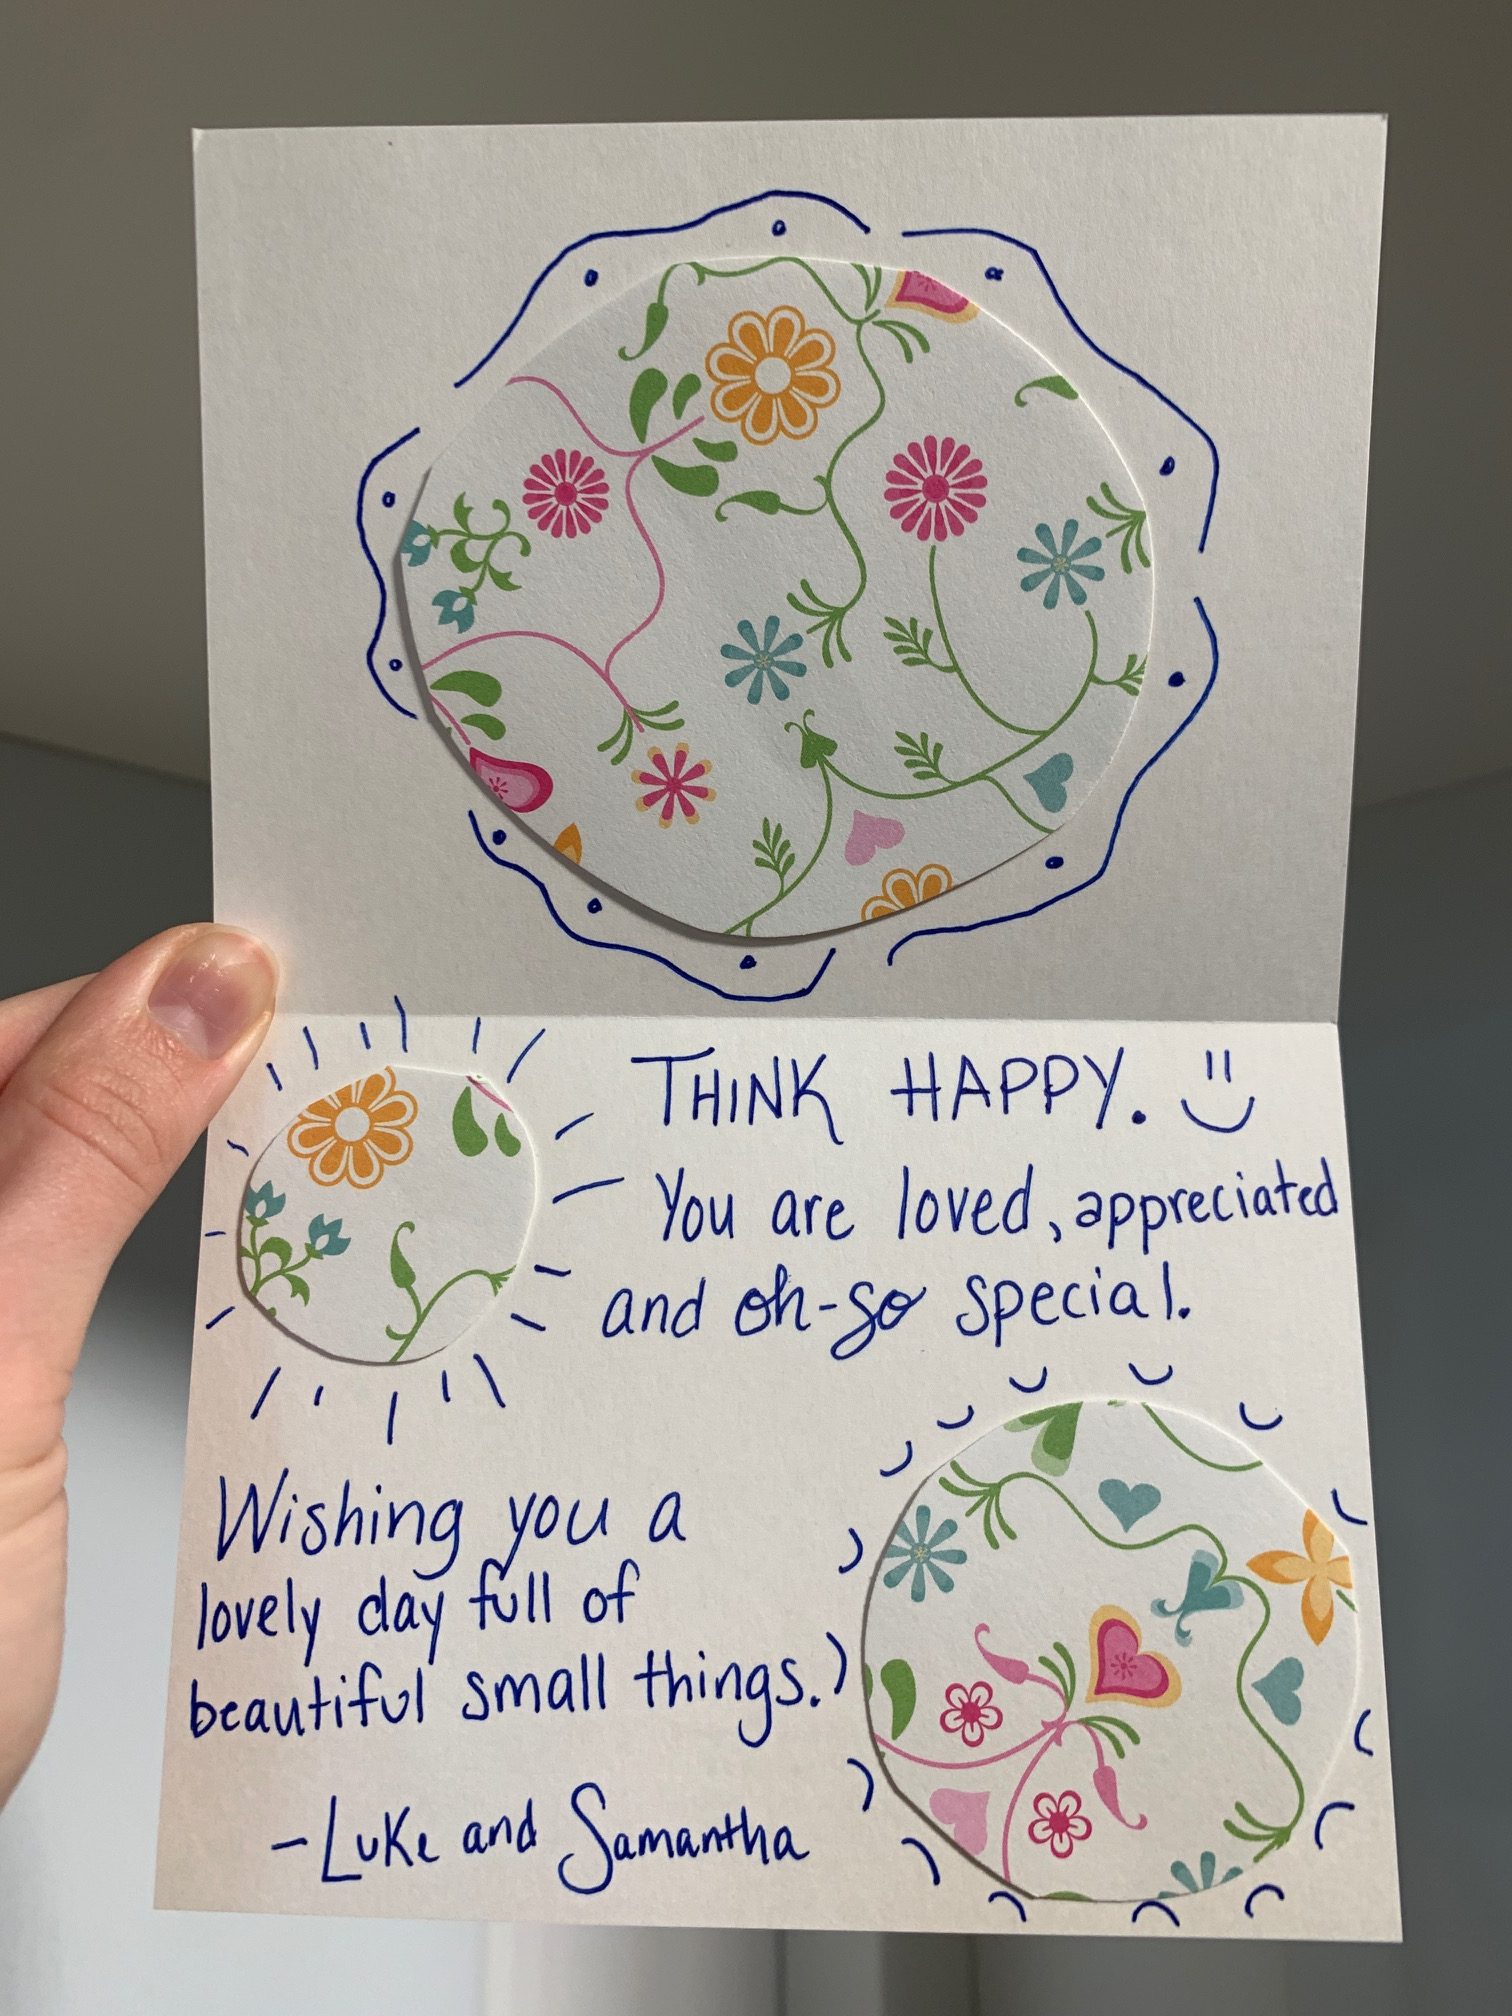 THINK HAPPY.
You are loved, appreciated
and oh-so special.
Wishing you a
lovely day full of
beautiful small things.
- Luke and Samantha